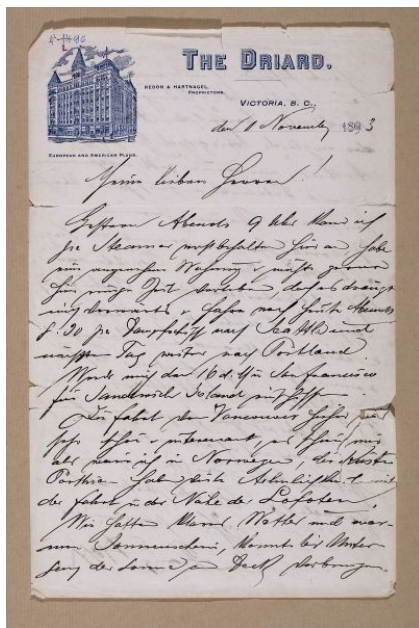 THE DRIARD.
REDON & HARTNAGEL,
PROPRIETORS.
VICTORIA, B. C.,
den 8 November 1893
EUROPEAN AND AMERICAN PLANS.
Meine lieben Herren!
Gestern Abends 9 Uhr kam ich
pr Steamer wohlbehalten hier an, habe
eine angenehme Wohnung & möchte gerne
hier einige Zeit, doch es drängt
mich vorwärts & fahre noch heute Abends
8.30 pr Dampfschiff nach Seattle und
nächsten Tag weiter nach Portland
Werde mich den 16 d. M in San Francisco
für Sandwich Island einschiffen
Die Fahrt von Vancouver hieher war
sehr schön & interessant, es schien mir
als wäre ich in Norwegen, die Küsten
haben viele Aehnlichkeit mit
der Fahrt in der Nähe der Lofoten.
Wir hatten klares Wetter und war-
men Sonnenschein, konnte bis Unter-
gang der Sonne an Deck verbringen.